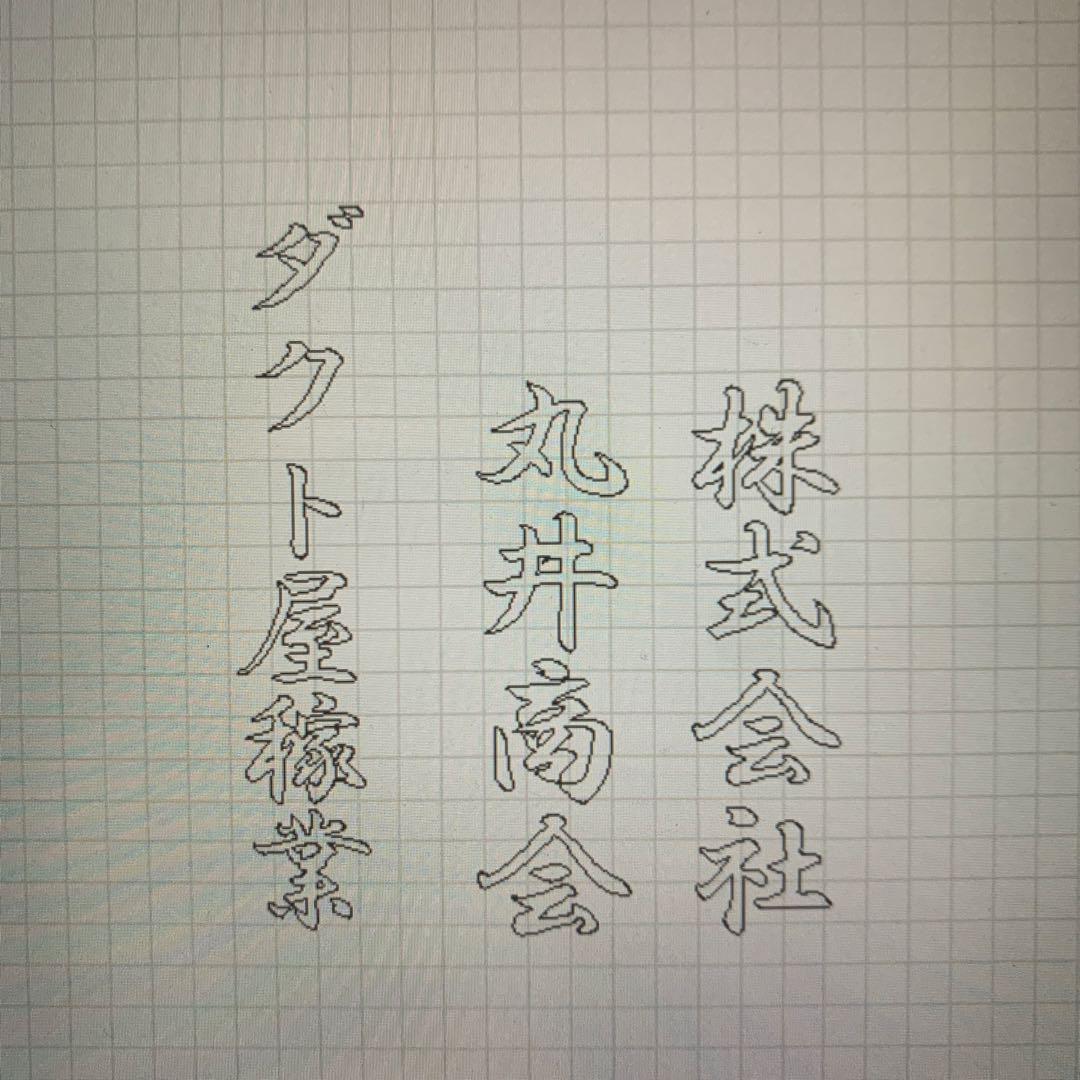 株式会社
丸井商会
ダクト屋稼業